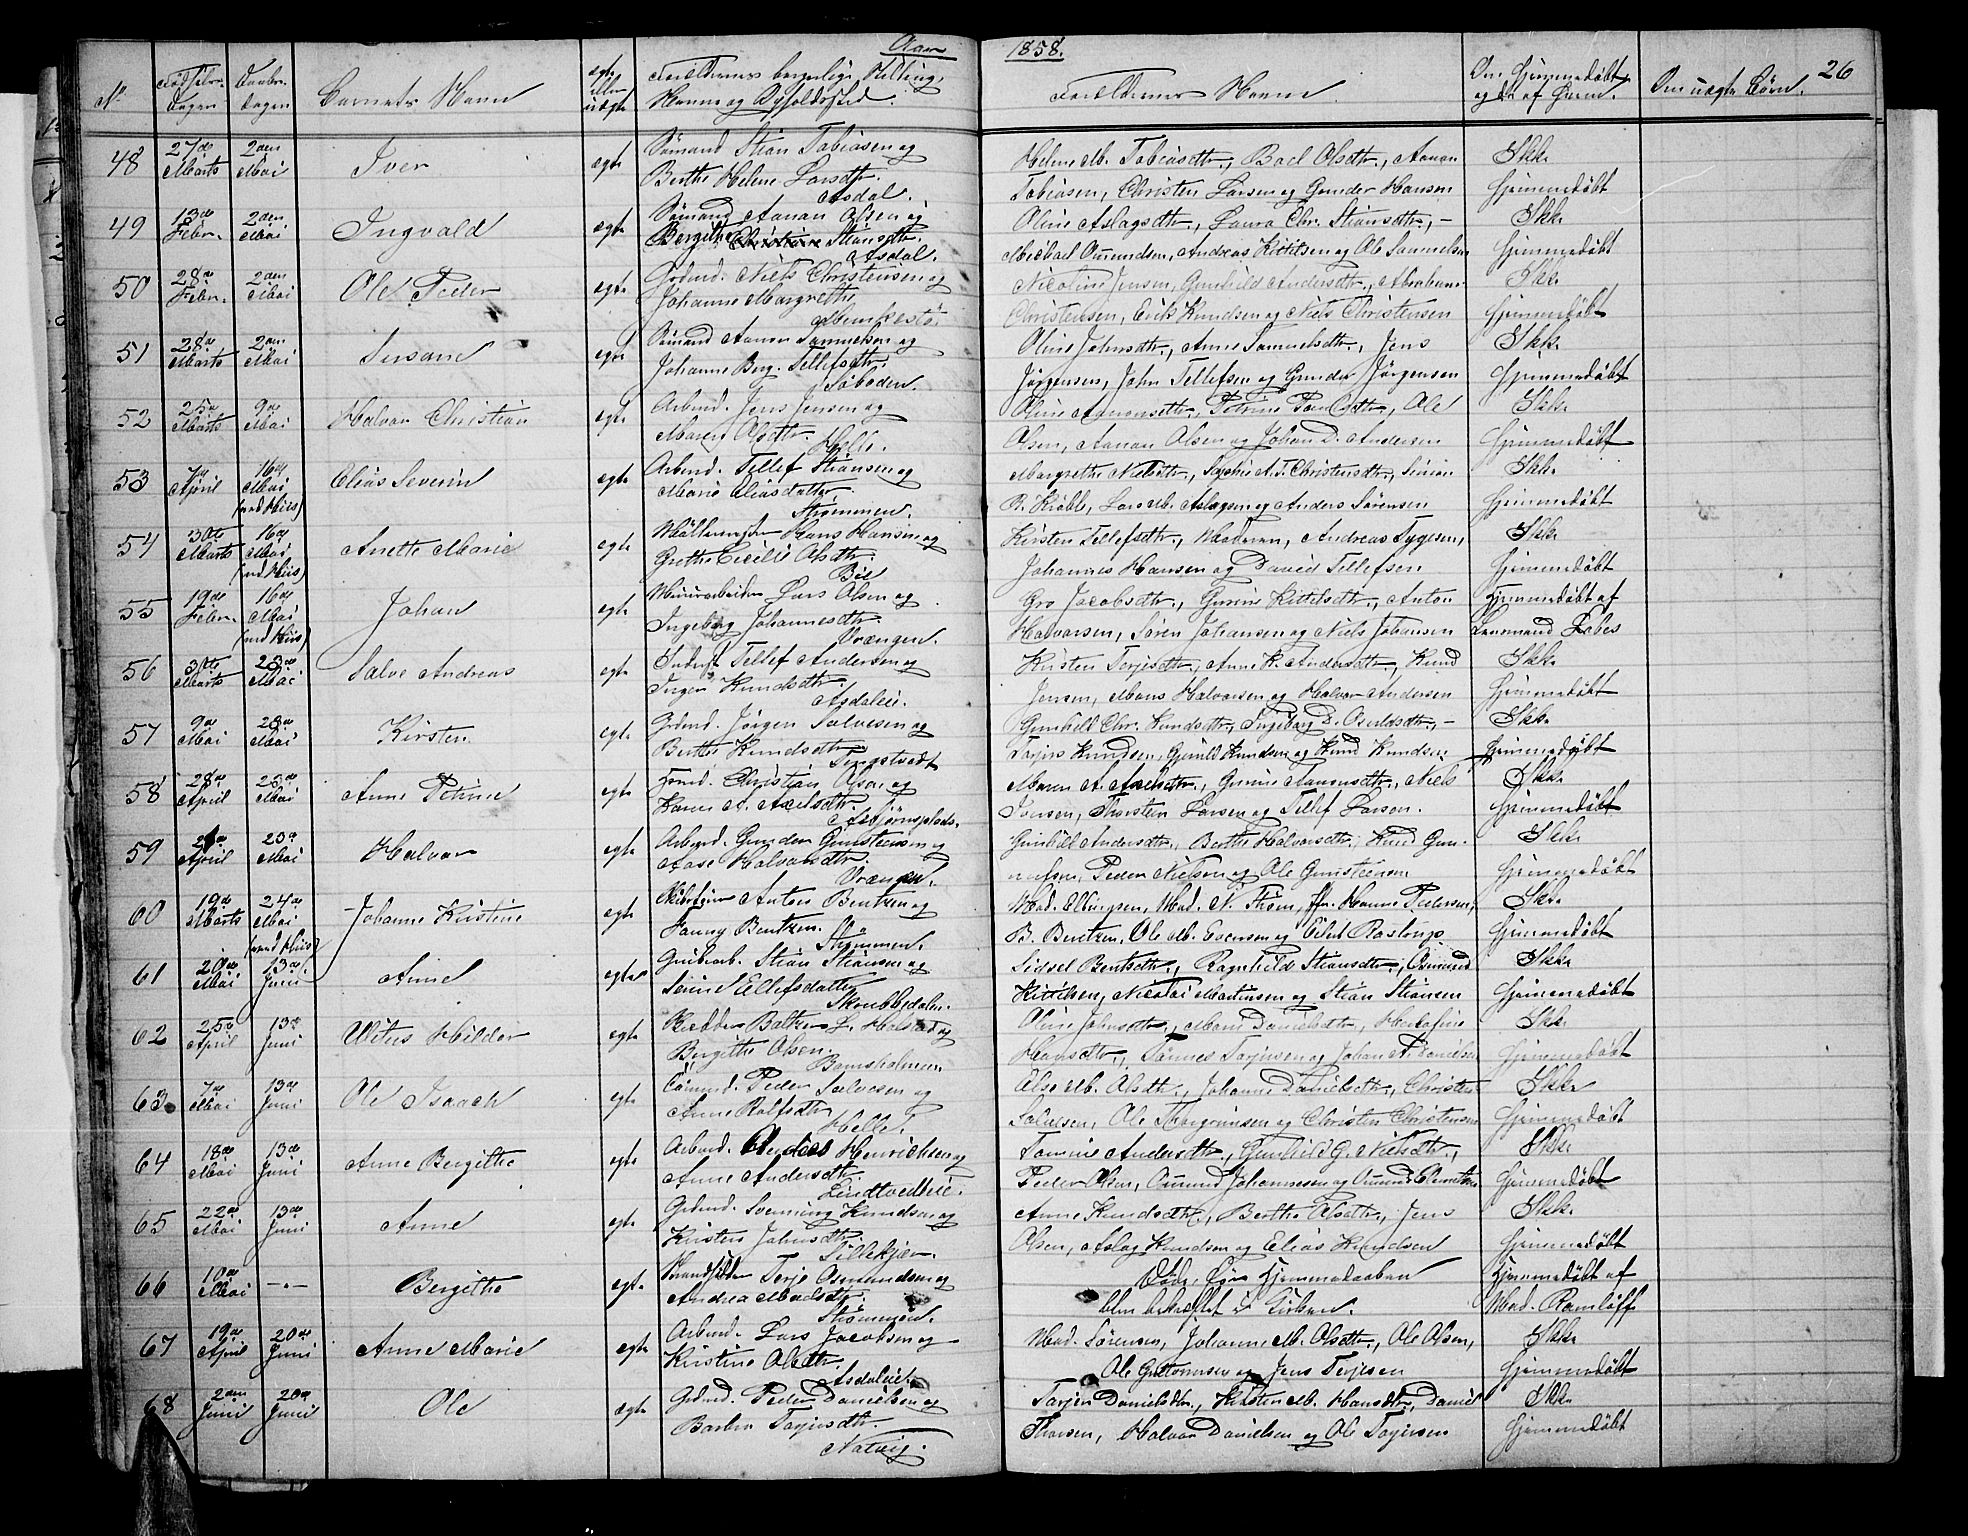 Aar 1858. 26
No Fødselsdagen Daabsdagen Barnets Navn egte eller uægte Forældrenes borgerlige Stilling, Navne og Opholdssted. Faddernes Navne Om hjemmedøbt og da af hvem. Om uægte Børn.
48 27de Marts 2den Mai Iver egte Sømand Stian Tobiasen og
Berthe Helene Larsdtr. Asdal.
Helene M. Tobiasdtr., Boel Olsdtr., Aanon
Tobiasen, Christen Larsen og Gunder Hansen
Ikke hjemmedøbt
49 13de Febr. 2den Mai Ingvald egte Sømand Aanon Olsen og
Bergithe Christine Stiansdtr. Asdal.
Oline Aslagsdtr., Laura Chr. Stiansdtr., -
Michael Omundsen, Andreas Kittilsen og Ole Samuelsen
Ikke hjemmedøbt
50 28de Febr. 2den Mai Ole Peder egte Grdmd. Niels Christensen og
Johanne Margrethe
Nicoline Jensen, Gunhild Andersdtr., Abraham
Christensen, Erik Knudsen og Niels Christensen
Ikke hjemmedøbt
51 28de Marts 2den Mai Susane egte Sømand Aanon Samuelsen og
Johanne Berg. Tellefsdtr. Søboden.
Oline Johnsdtr., Anne Samuelsdtr., Jens
Jørgensen, John Tellefsen og Gunder Jørgensen
Ikke hjemmedøbt
52 25de Marts 9de Mai Halvor Christian egte Arbmd. Jens Jensen og
Maren Olsdtr. Helle.
Oline Aanonsdtr., Petrine Paulsdtr., Ole
Olsen, Aanon Olsen og Johan D. Andersen
Ikke hjemmedøbt
53 7de April 16de Mai (ved Huus) Elias Severin egte Arbmd. Tellef Stiansen og
Marie Eliasdatter Strømmen.
Margrethe Nielsdtr., Sophie A. T. Christensdtr., Simon
R. Krabbe, Lars M. Aslagsen og Anders Sørensen
Ikke hjemmedøbt
54 30te Marts 16de Mai (ved Huus) Anette Marie egte Hans Hansen og
Grethe Cecilie Olsdtr. Bie
Kirsten Tellefsdtr., Madmoen, Andreas Tygesen,
Johannes Hansen og David Tellefsen
Ikke hjemmedøbt
55 19de Febr. 16de Mai (ved Huus) Johan egte Minearbeider Lars Olsen og
Ingeborg Johannesdtr. Vrængen.
Gro Jacobsdtr., Gurine Kittelsdtr., Anton
Halvorsen, Søren Johansen og Niels Johansen
Hjemmedøbt af Lensmand Debes
56 30te Marts 23de Mai Salve Andreas egte Inderst Tellef Andersen og
Inger Knudsdtr. Asdaleie.
Kirsten Terjesdtr., Anne K. Andersdtr., Knud
Jensen, Mons Halvorsen og Halvor Andersen
Ikke hjemmedøbt
57 9de Mai 23de Mai Kirsten egte Grdmd. Jørgen Salvesen og
Berthe Knudsdtr. Longstvedt
Gunhild Chr. Knudsdtr., Ingeborg D. Osuldsdtr., -
Terjes Knudsen, Gjeruld Knudsen og Knud Knudsen
Ikke hjemmedøbt
58 28de April 23de Mai Anne Petrine egte Christian Olsen og
Karen A. Axelsdtr. Asbjørnsplads.
Maren A. Axelsdtr., Gurine Aanonsdtr., Niels
Iversen, Thorsten Larsen og Tellef Larsen.
Ikke hjemmedøbt
59 April 23de Mai Halvor egte Arbmd. Gunder Gunsteensen og
Aase Halvorsdtr. Vrængen.
Gunhild Andersdtr., Berthe Halvorsdtr., Knud Gun-
Peder Nielsen og Ole Gunsteensen
Ikke hjemmedøbt
60 19de Marts 24de Mai (ved Huus) Johanne Kristine egte Skibsfører Anton Bentzen og
Fanny Bentzen. Strømmen.
Mad. Ellingsen, Mad. N. Thom, Jfr. Hanne Pedersen,
B. Bentzen, Ole M. Evensen og Eilert Rostrup
Ikke hjemmedøbt
61 20de Mai 13de Juni Anne egte Grubearb. Stian Stiansen og
Serine Ellefsdatter Skrubbedalen.
Sidsel Bentsdtr., Ragnhild Stiansdtr., Osmund
Kittilsen, Nicolai Martinsen og Stian Stiansen
Ikke hjemmedøbt
62 25de April 13de Juni Vitus Hilder egte Bødker Baltzer L. Halstad og
Bergithe Olsen. Bomsholmen
Oline Johnsdtr., Maren Danielsdtr.,
Hansdtr., Tønnes Torjusen og Johan A. Danielsen
Ikke hjemmedøbt
63. 7de Mai 13de Juni Ole Isaach egte Sømand. Peder Salvesen og
Anne Rolfsdtr. Helle.
Else M. Olsdtr., Johanne Danielsdtr., Christen
Salvesen, Ole Thorgrimsen og Christen Christensen
Ikke hjemmedøbt
64 18de Mai 13de Juni Anne Bergithe egte Arbmd. Anders Henrichsen og
Anne Andersdtr. Lindtvedteie.
Tomine Andersdtr., Gunhild G. Nielsdtr.,
Peder Olsen, Omund Johannesen og Omund Clemetsen
Ikke hjemmedøbt
65 22de Mai 13de Juni Anne egte Grdmd. Svenning Knudsen og
Kirsten Johnsdtr. Lillekjær.
Anne Knudsdtr., Berthe Olsdtr., Jens
Olsen, Aslag Knudsen og Elias Knudsen
Ikke hjemmedøbt
66 10de Mai -„- Bergithe egte Strandsidder Terje Osmundsen og
Andrea Madsdtr. Strømmen.
Døde før Hjemmedaaben
blev bekræftet i Kirken.
Hjemmedøbt af Mad. Ramløff
67 19de April 20de Juni Anne Marie egte Arbmd. Lars Jacobsen og
Kirstine Olsdtr. Asdaleie.
Mad. Sørensen, Johanne M. Olsdtr., Ole Olsen,
Ole Guttormsen og Jens Terjesen
Ikke hjemmedøbt
68 2den Juni 20de Juni Ole egte Grdmd. Peder Danielsen og
Barbro Torjusdtr. Natvig.
Torjer Danielsdtr., Kirsten M. Hansdtr., Daniel
Thorsen, Halvor Danielsen og Ole Torjusen
Ikke hjemmedøbt